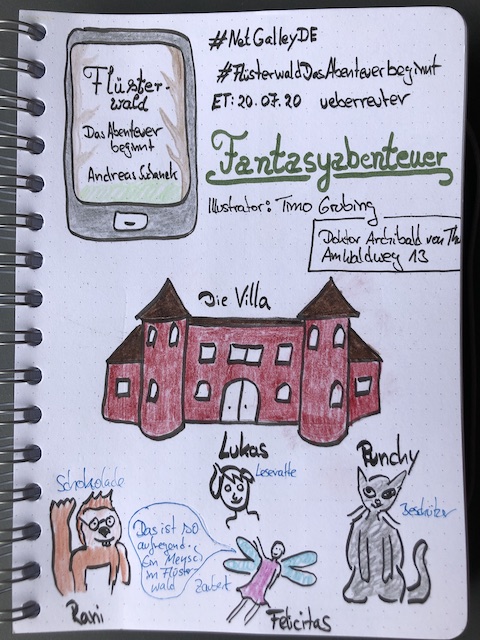 #NetGalleyDE
#FlüsterwaldDasAbenteuerbeginnt
ET: 20.07.20 ueberreuter
Flüster-
wald
Das Abenteuer
beginnt
Andreas Suchanek
Fantasyabenteuer
Illustrator: Timo Grubing
Doktor Archibald von Th
Am Waldweg 13
Die Villa
Lukas
Leseratte
Punchy
Beschützer
Schokolade
Das ist so
aufregend..
Ein Mensch
im Flüster
wald
Zaubert
Rani
Felicitas